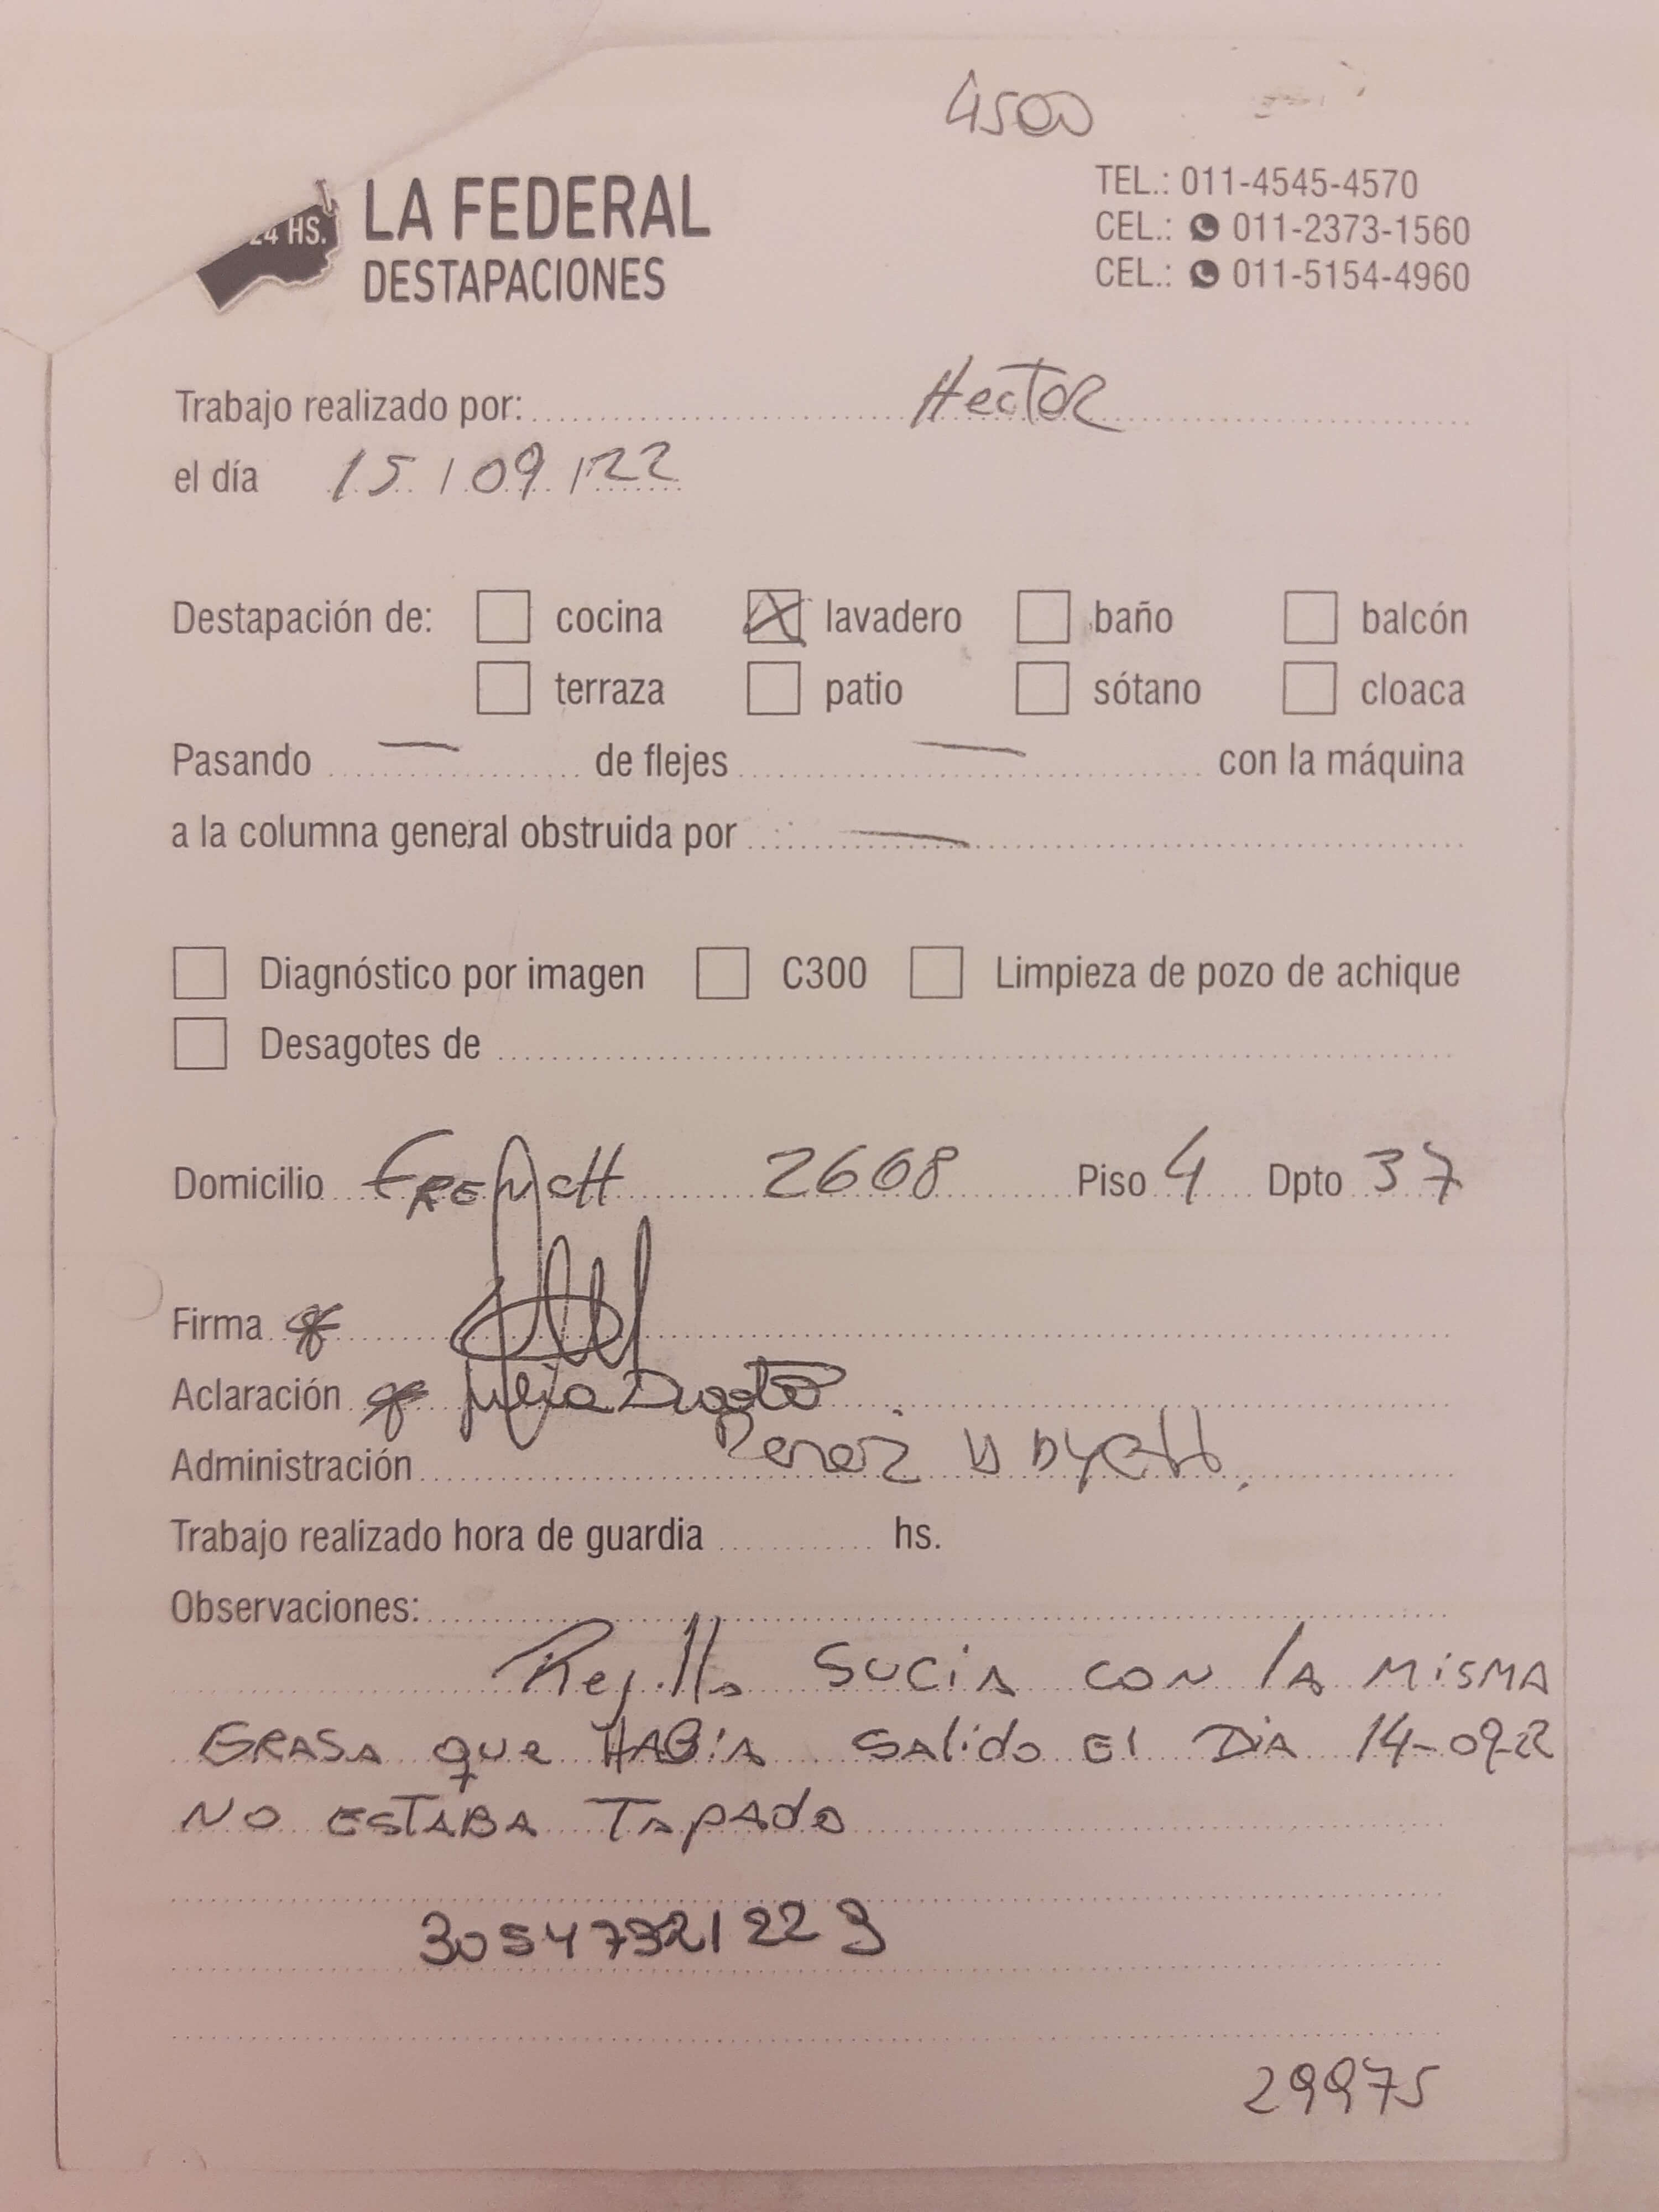 4500
24 HS.
LA FEDERAL
DESTAPACIONES
TEL.: 011-4545-4570
CEL.: 011-2373-1560
CEL.: 011-5154-4960
Trabajo realizado por: Hector
el día 15/09/22
Destapación de: cocina lavadero baño balcón
terraza patio sótano cloaca
Pasando — de flejes — con la máquina
a la columna general obstruida por —
Diagnóstico por imagen C300 Limpieza de pozo de achique
Desagotes de
Domicilio FRENCH 2608 Piso 4 Dpto 37
Firma
Aclaración Julia
Administración Perez
Trabajo realizado hora de guardia hs.
Observaciones:
Rejilla SUCIA CON LA MISMA
GRASA que HABiA SALido El DiA 14-09-22
NO ESTABA TAPADO
30547321229
29975